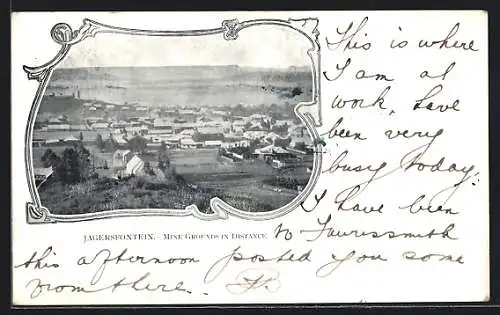 This is where
I am at
work, have
been very
busy today.
I have been
JAGERSFONTEIN. MINE GROUNDS IN DISTANCE.
to Fauressmith
this afternoon posted you some
from there.